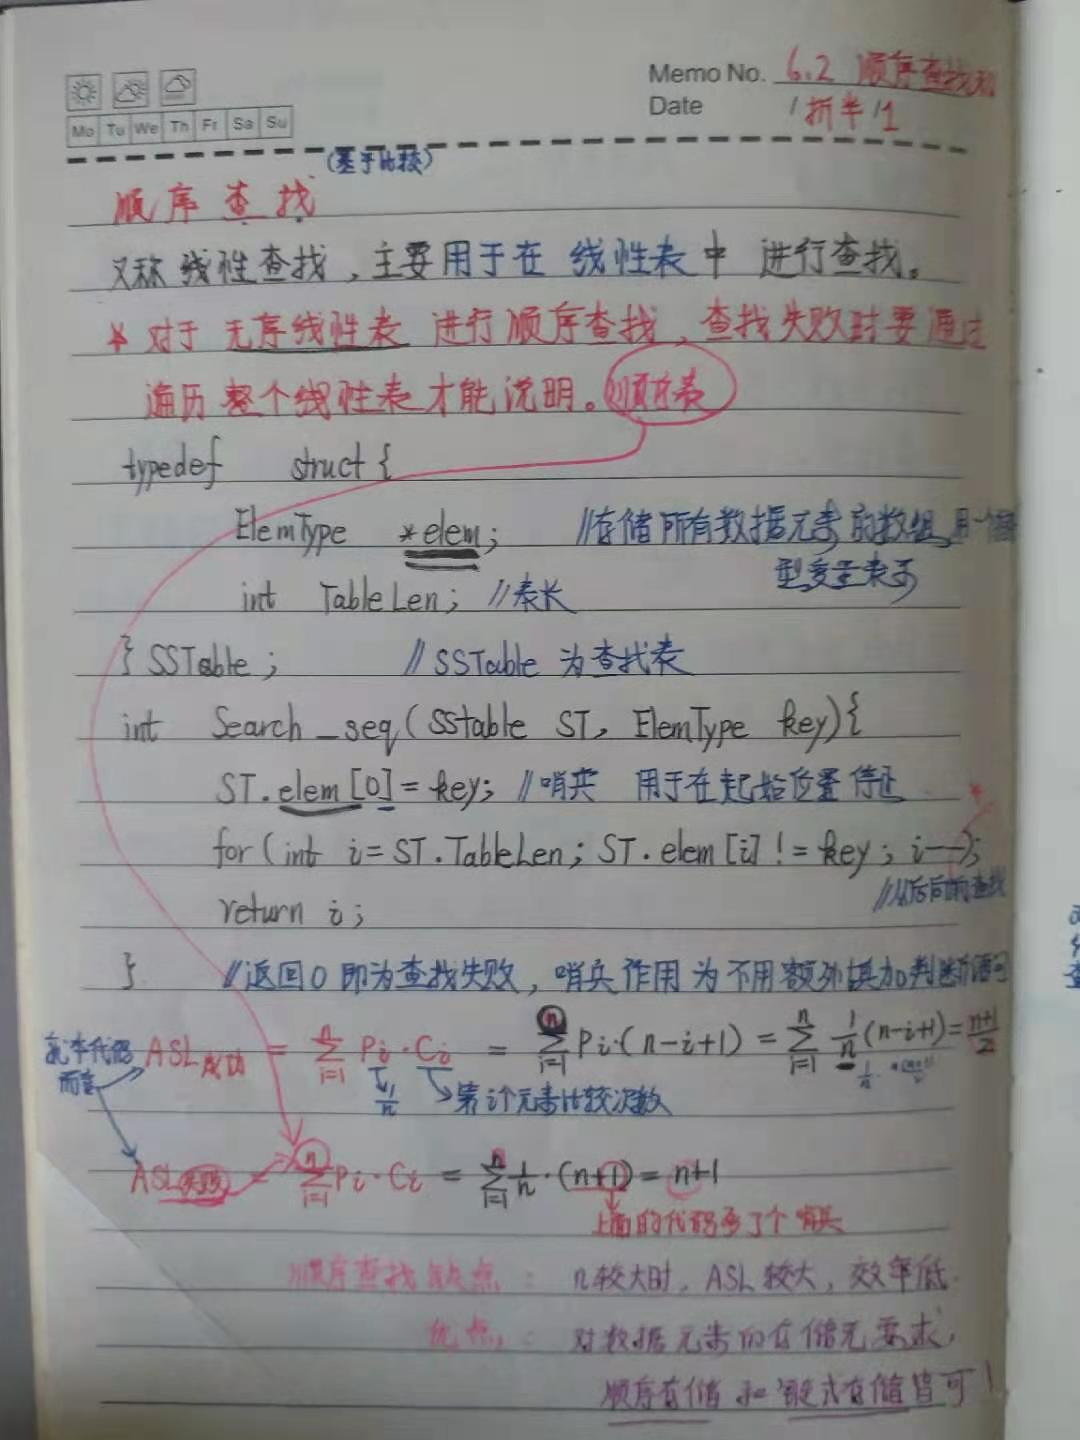 Memo No. 6.2 顺序查找和
Date / 折半 /1
Mo Tu We Th Fr Sa Su
(基于比较)
顺序查找
又称线性查找,主要用于在 线性表中 进行查找。
* 对于无序线性表 进行顺序查找,查找失败时要通过
遍历整个线性表才能说明。顺序表
typedef struct {
ElemType *elem; //存储所有数据元素的数组,用一个
型变量表示
int TableLen; //表长
} SSTable; // SSTable 为查找表
int Search_seq(SStable ST, ElemType key){
ST.elem[0]=key; //哨兵 用于在起始位置停止
for(int i=ST.TableLen; ST.elem[i]!=key; i--);
//从后向前查找
return i;
} //返回0即为查找失败,哨兵作用为不用额外填加判断语句
就本代码
而言
ASL成功 = ∑ⁿᵢ₌₁ Pi·Ci = ∑ⁿᵢ₌₁ Pi·(n-i+1) = ∑ⁿᵢ₌₁ 1/n (n-i+1) = (n+1)/2
1/n 第i个元素比较次数
ASL失败 = ∑ⁿᵢ₌₁ Pi·Ci = ∑ⁿᵢ₌₁ 1/n·(n+1) = n+1
上面的代码多了个哨兵
顺序查找缺点: n较大时,ASL较大,效率低.
优点: 对数据元素的存储无要求,
顺序存储和链式存储皆可!